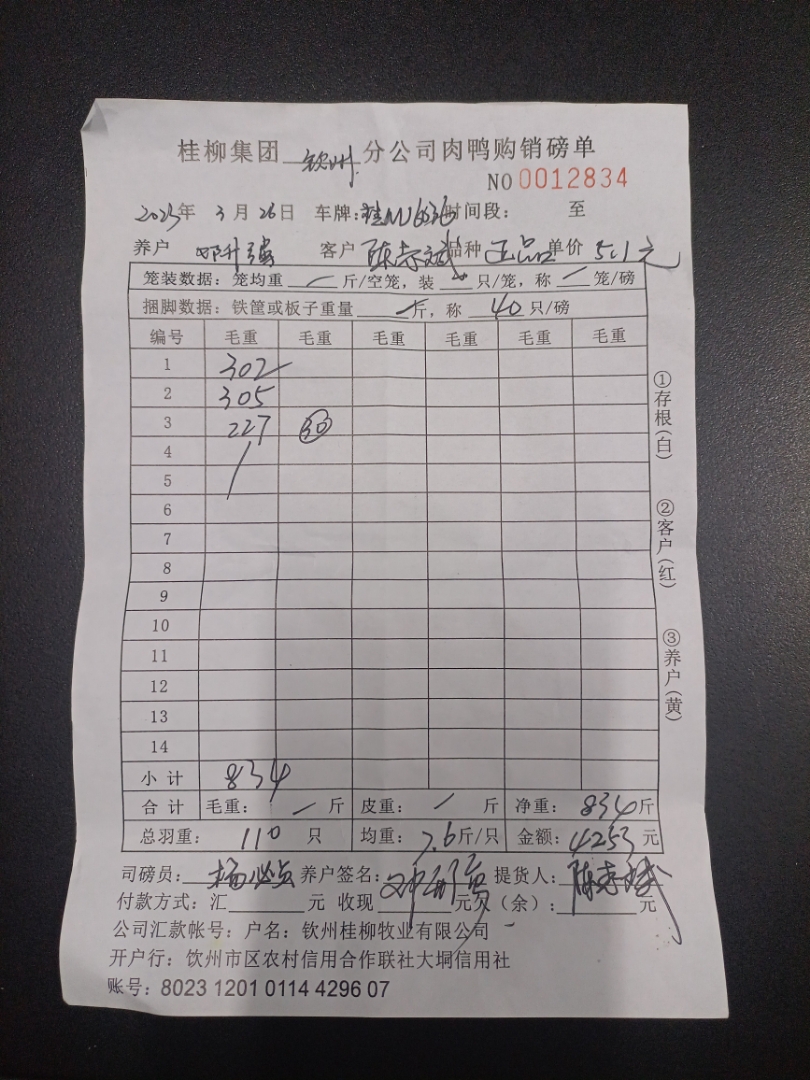 桂柳集团 钦州 分公司肉鸭购销磅单
NO 0012834
2023年 3月26日 车牌: 时间段: 至
养户 邓升强 客户 陈 斌 品种 正品 单价 5.1元
笼装数据: 笼均重 斤/空笼, 装 只/笼, 称 笼/磅
捆脚数据: 铁筐或板子重量 斤, 称 40 只/磅
编号 毛重 毛重 毛重 毛重 毛重 毛重
1 302
2 305
3 227 30
4
5
6
7
8
9
10
11
12
13
14
小计 834
合计 毛重: 斤 皮重: 斤 净重: 834斤
总羽重: 110 只 均重: 7.6斤/只 金额: 4253元
司磅员: 杨 养户签名: 邓升强 提货人: 陈 斌
付款方式: 汇 元 收现 元欠(余): 元
公司汇款帐号: 户名: 钦州桂柳牧业有限公司
开户行: 钦州市区农村信用合作联社大垌信用社
账号: 8023 1201 0114 4296 07
①存根(白)
②客户(红)
③养户(黄)